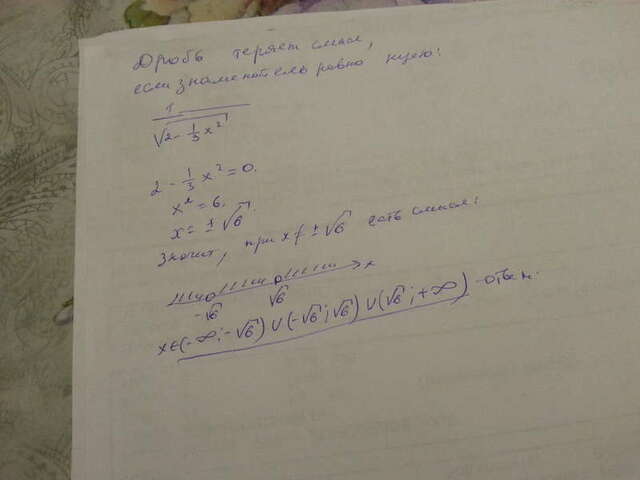 Дробь теряет смысл,
если знаменатель равно нулю:
1
√2 - 1/3 x²
2 - 1/3 x² = 0.
x² = 6.
x = ± √6.
Значит, при x ≠ ± √6 есть смысл:
-√6 √6 x
x ∈ (-∞; -√6) ∪ (-√6; √6) ∪ (√6; +∞) - ответ.